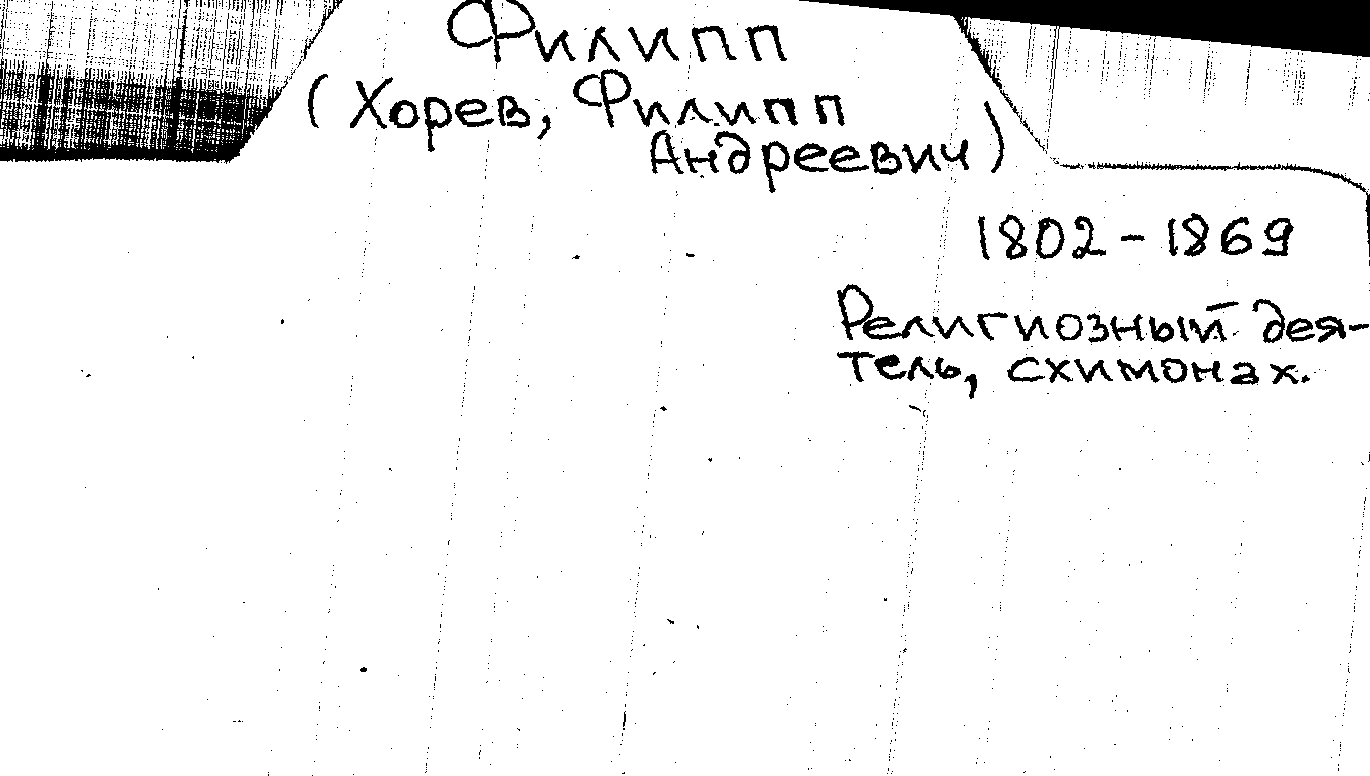 Филипп
(Хорев, Филипп
Андреевич)
1802 - 1869
Религиозный дея-
тель, схимонах.